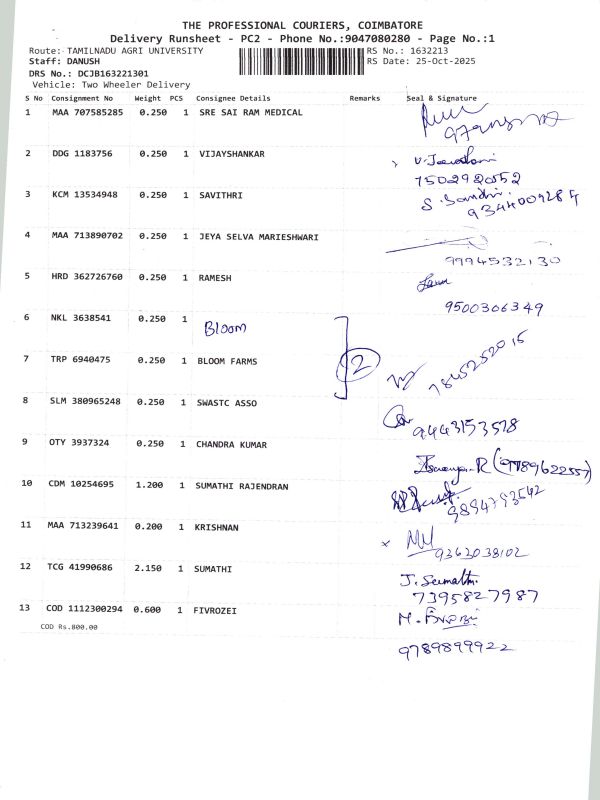 THE PROFESSIONAL COURIERS, COIMBATORE
Delivery Runsheet - PC2 - Phone No.:9047080280 - Page No.:1
Route: TAMILNADU AGRI UNIVERSITY RS No.: 1632213
Staff: DANUSH RS Date: 25-Oct-2025
DRS No.: DCJB163221301
Vehicle: Two Wheeler Delivery
S No Consignment No Weight PCS Consignee Details Remarks Seal & Signature
1 MAA 707585285 0.250 1 SRE SAI RAM MEDICAL
2 DDG 1183756 0.250 1 VIJAYSHANKAR
7502920052
3 KCM 13534948 0.250 1 SAVITHRI
4 MAA 713890702 0.250 1 JEYA SELVA MARIESHWARI
9994532130
5 HRD 362726760 0.250 1 RAMESH
9500306349
6 NKL 3638541 0.250 1 Bloom
7 TRP 6940475 0.250 1 BLOOM FARMS 2
7845252015
8 SLM 380965248 0.250 1 SWASTC ASSO
9443153578
9 OTY 3937324 0.250 1 CHANDRA KUMAR
(9789622557)
10 CDM 10254695 1.200 1 SUMATHI RAJENDRAN
9894793542
11 MAA 713239641 0.200 1 KRISHNAN
9363038102
12 TCG 41990686 2.150 1 SUMATHI
J. Sumathi
7395827987
13 COD 1112300294 0.600 1 FIVROZEI
COD Rs.800.00
9789899922